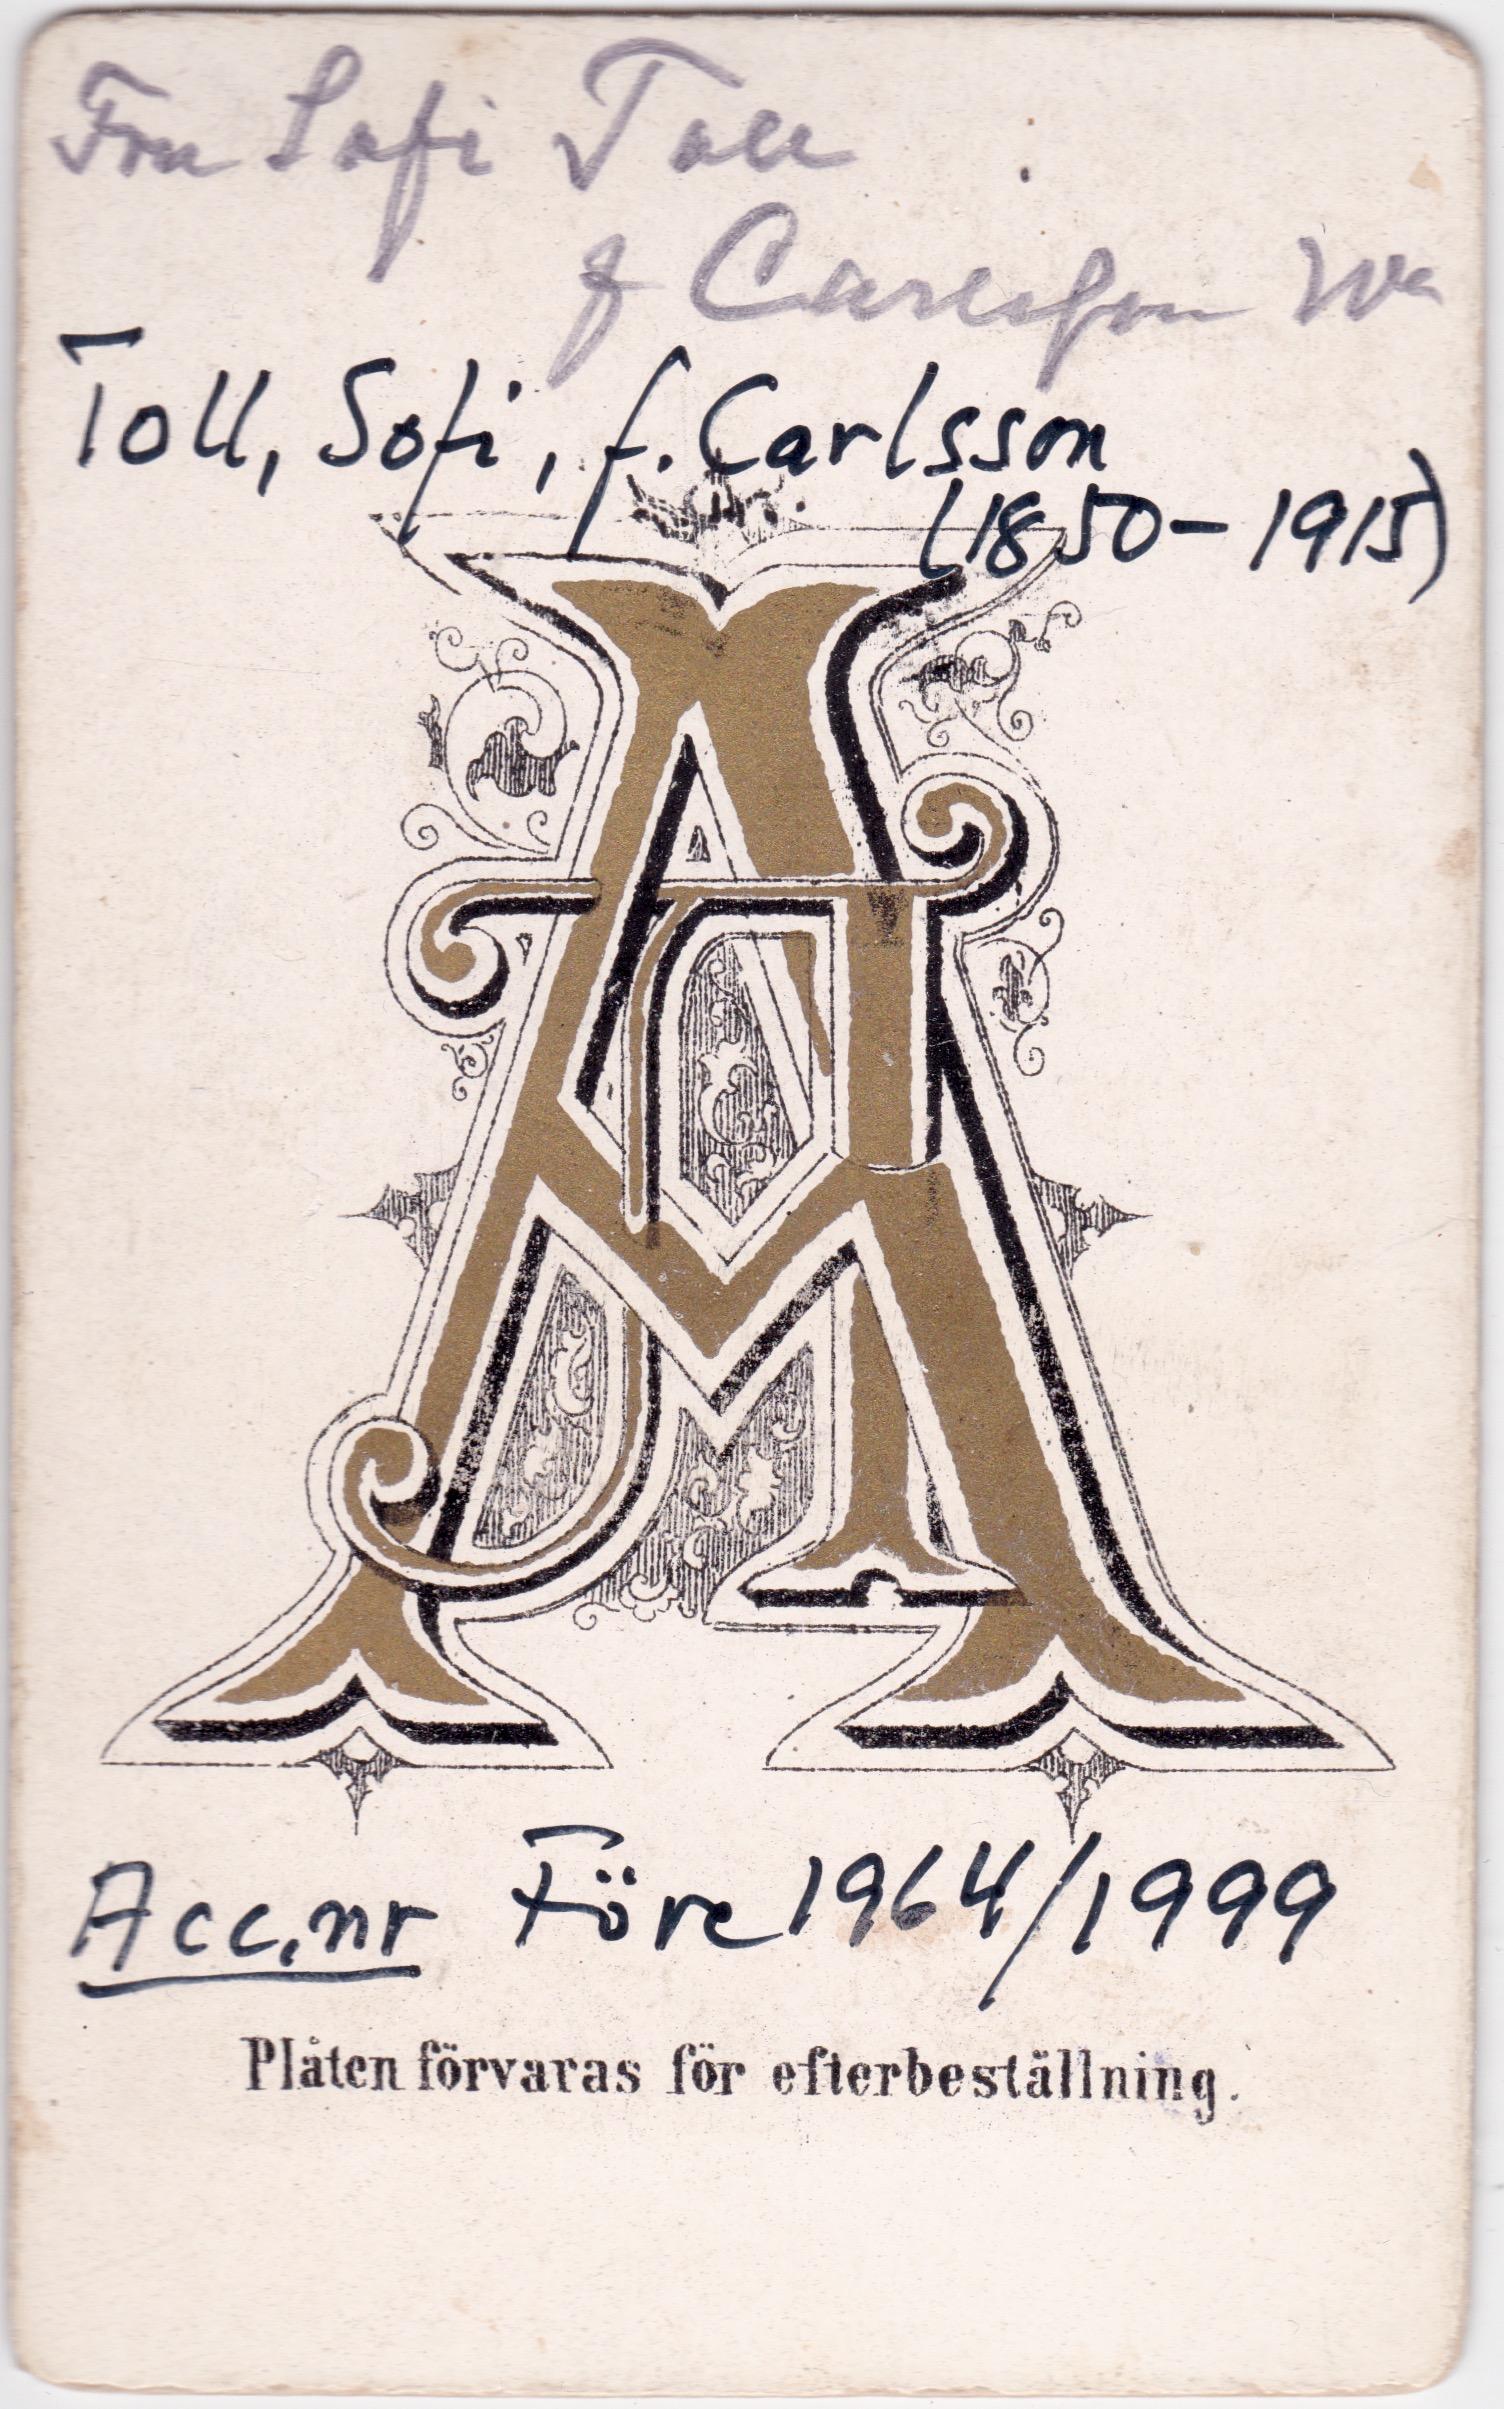 Fru Sofi Toll
f Carlsson
Toll, Sofi, f. Carlsson
(1850-1915)
AM
Acc.nr Före 1964/1999
Plåten förvaras för efterbeställning.